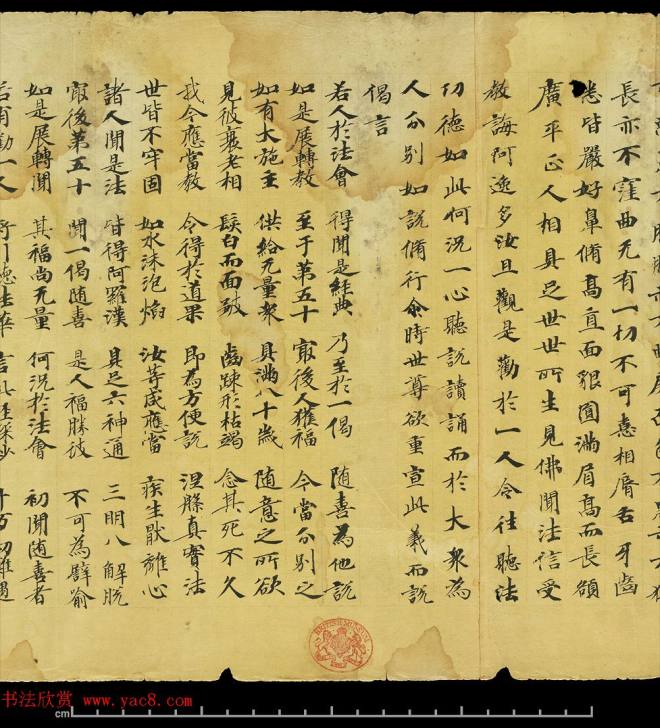 長亦不窪曲无有一切不可憙相脣舌牙齒
悉皆嚴好鼻脩高直面貌圓滿眉高而長頟
廣平正人相具足世世所生見佛聞法信受
教誨阿逸多汝且觀是勸於一人令往聽法
功德如此何況一心聽說讀誦而於大衆為
人分別如說脩行尒時世尊欲重宣此義而說
偈言
若人於法會 得聞是經典 乃至於一偈 隨喜為他說
如是展轉教 至于第五十 㝡後人獲福 今當分別之
如有大施主 供給无量衆 具滿八十歲 隨意之所欲
見彼衰老相 髮白而面皺 齒踈形枯竭 念其死不久
我今應當教 令得於道果 即為方便說 涅槃真實法
世皆不牢固 如水沫泡焰 汝等咸應當 疾生猒離心
諸人聞是法 皆得阿羅漢 具足六神通 三明八解脫
㝡後第五十 聞一偈隨喜 是人福勝彼 不可為譬喻
如是展轉聞 其福尚无量 何況於法會 初聞隨喜者
BRITISH MUSEUM
书法欣赏 www.yac8.com
cm